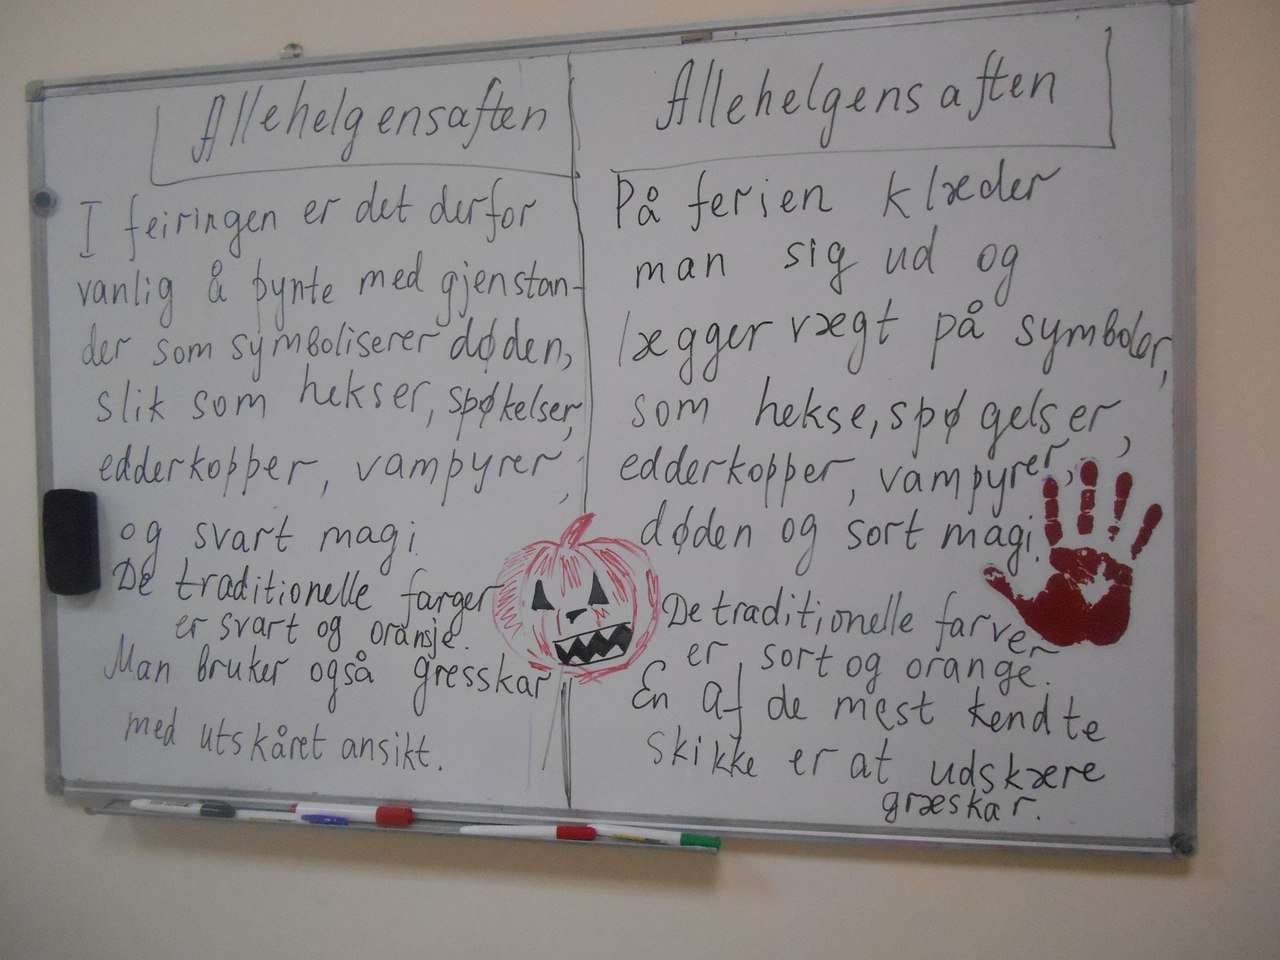 Allehelgensaften
I feiringen er det derfor
vanlig å pynte med gjenstan-
der som symboliserer døden,
slik som hekser, spøkelser,
edderkopper, vampyrer,
og svart magi.
De traditionelle farger
er svart og oransje.
Man bruker også gresskar
med utskåret ansikt.
Allehelgensaften
På ferien klæder
man sig ud og
lægger vægt på symboler,
som hekse, spøgelser,
edderkopper, vampyrer,
døden og sort magi.
De traditionelle farver
er sort og orange.
En af de mest kendte
skikke er at udskære
græskar.